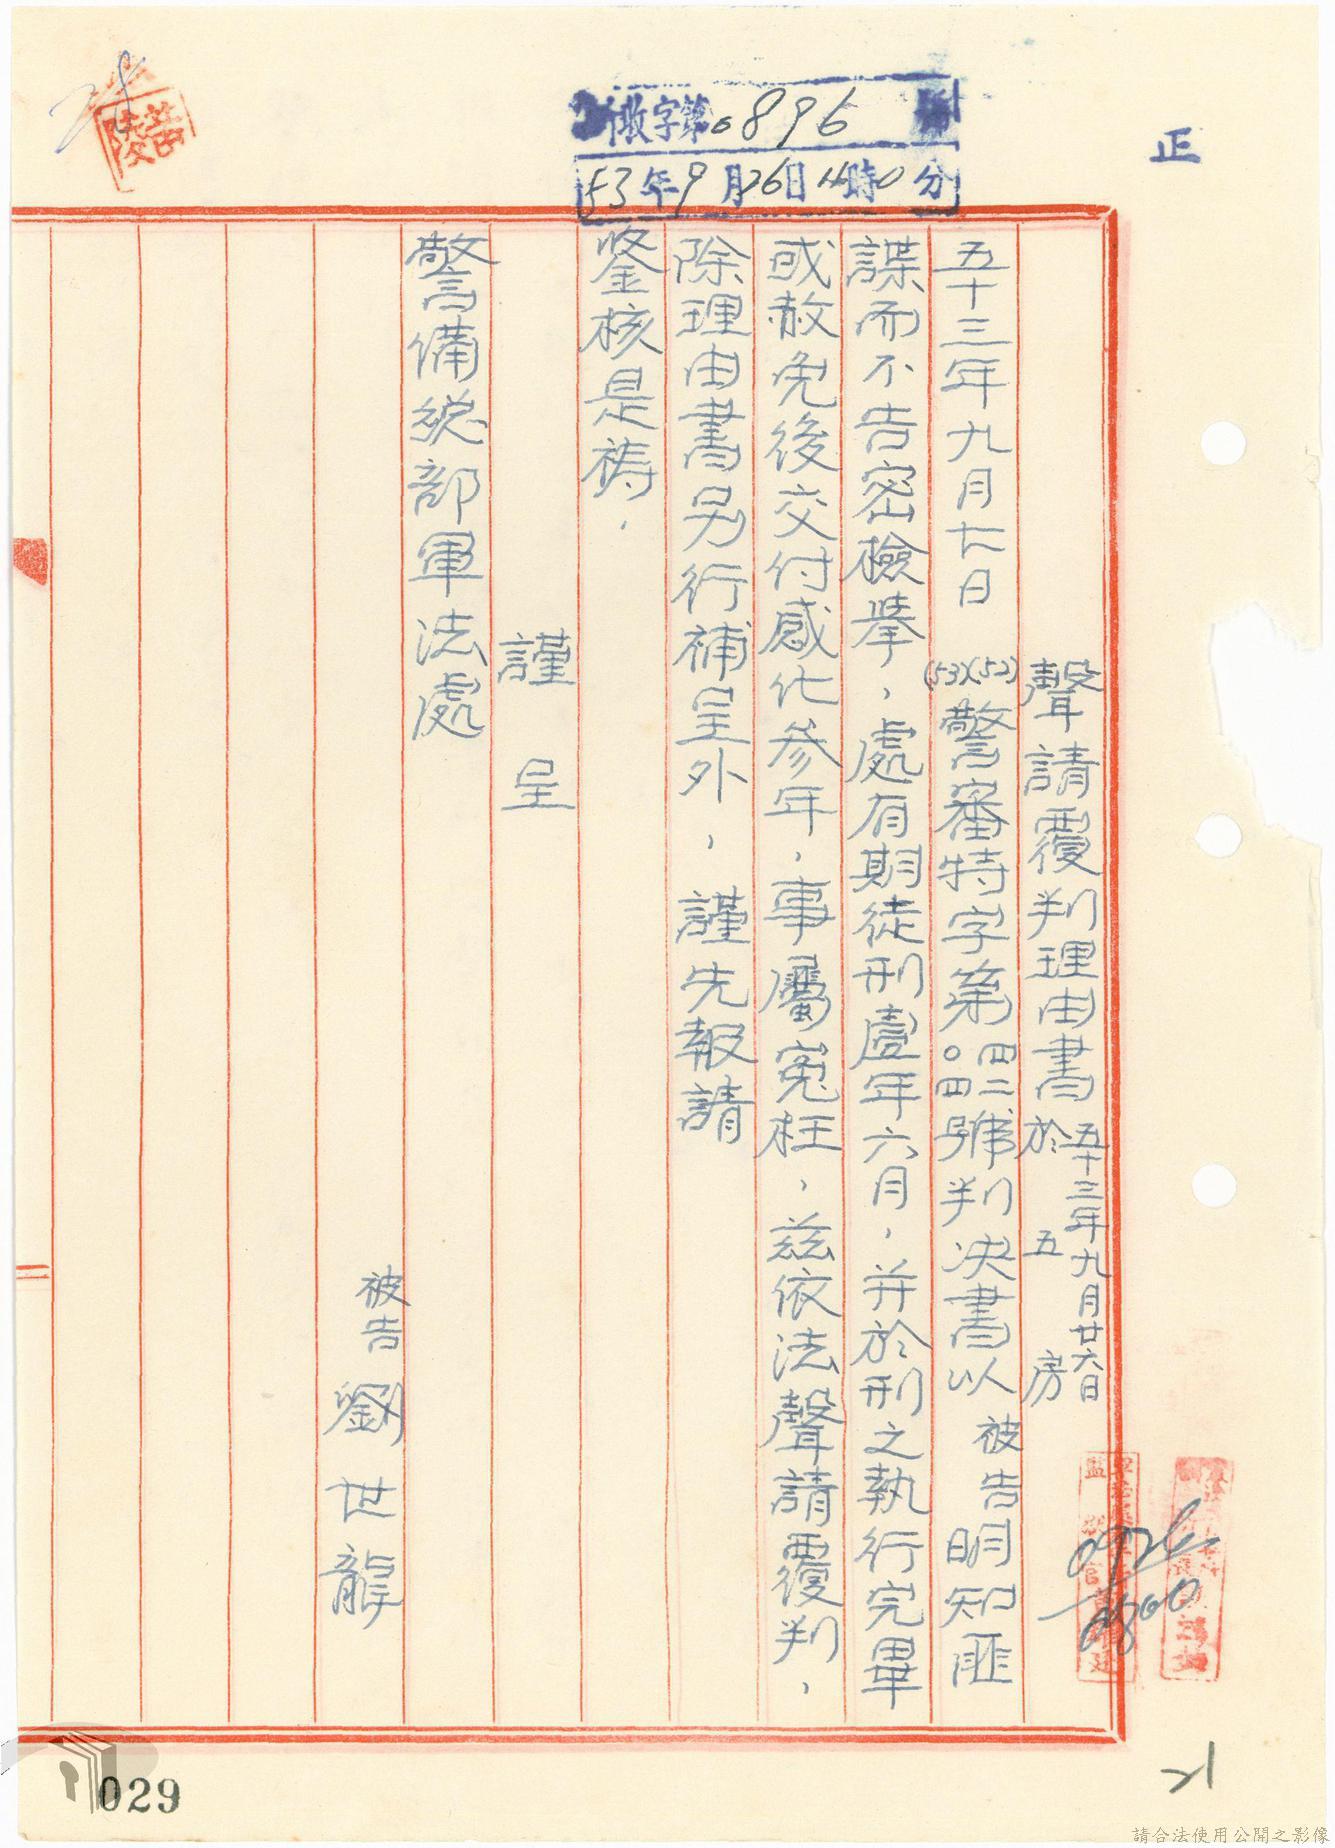 正
字第0896號
53年9月26日 時0分
聲請覆判理由書 五十三年九月廿六日
於五房
五十三年九月七日(52)(53)警審特字第四二〇四號判決書以被告明知匪
諜而不告密檢舉，處有期徒刑壹年六月，并於刑之執行完畢
或赦免後交付感化參年，事屬寃枉，茲依法聲請覆判，
除理由書另行補呈外，謹先報請
鑒核是禱，
謹呈
警備總部軍法處
被告 劉世龍
0926
21
029
請合法使用公開之影像